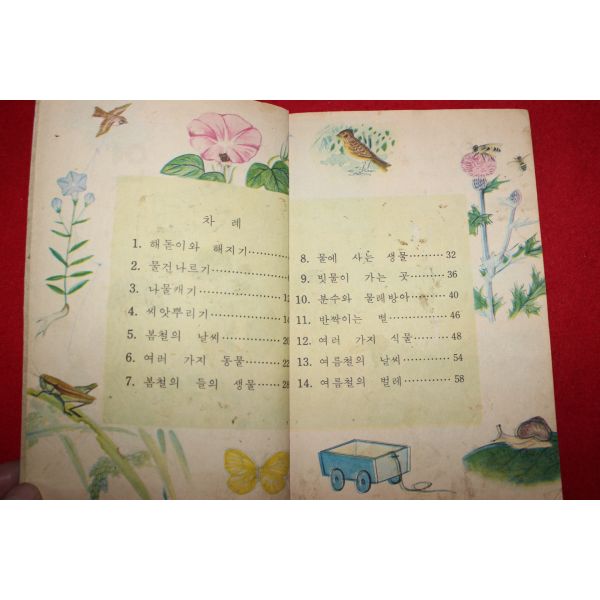 차 례
1. 해돋이와 해지기
2. 물건나르기
3. 나물캐기
4. 씨앗뿌리기
5. 봄철의 날씨
6. 여러 가지 동물 22
7. 봄철의 들의 생물 28
8. 물에 사는 생물 32
9. 빗물이 가는 곳 36
10. 분수와 물레방아 40
11. 반짝이는 별 46
12. 여러 가지 식물 48
13. 여름철의 날씨 54
14. 여름철의 벌레 58